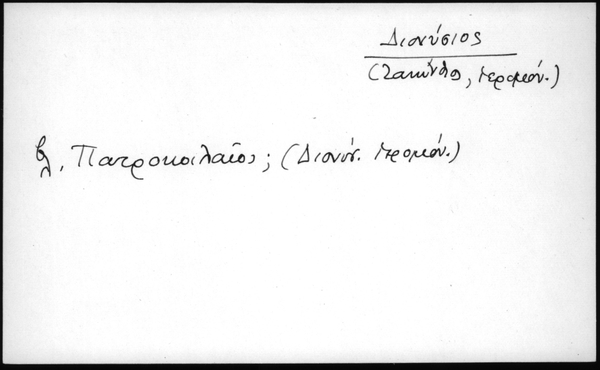 Διονύσιος
(Ζακύνθος, ιερομόν.)
βλ. Πατροκοιλαῖος; (Διονύσ. ιερομόν.)